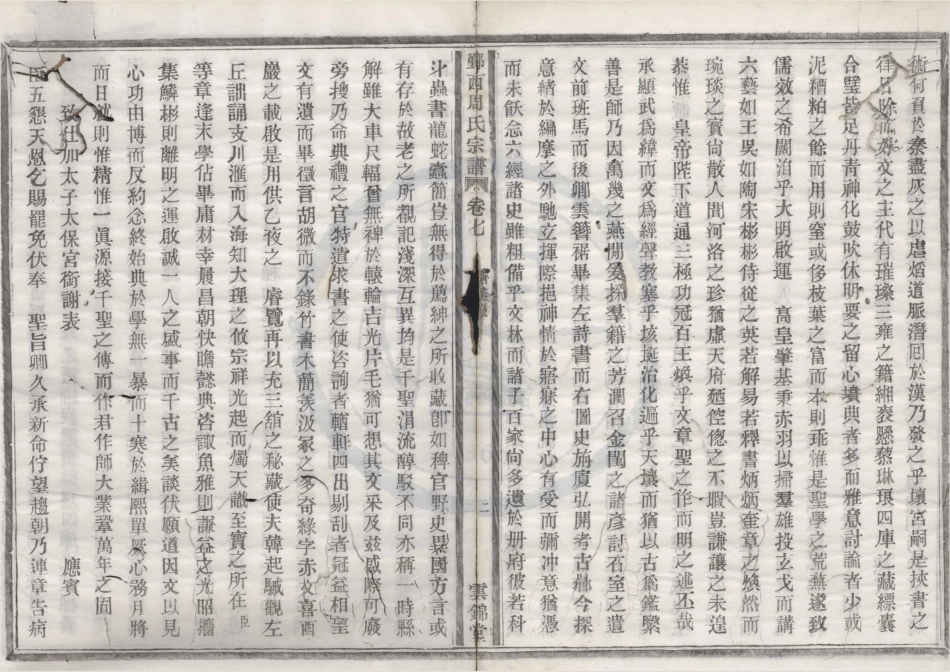 術何召於秦盡灰之以虐熖道脈潛囘於漢乃發之乎壞宮嗣是挾書之
律日除而舜文之主代有璀璨三雍之籍緗袠懸藜琳琅四庫之藏縹囊
合璧皆足丹青神化鼓吹休明要之留心墳典者多而雅意討論者少或
泥糟粕之餘而用則窒或侈枝葉之富而本則乖惟是聖學之荒蕪遂致
儒效之希闊洎乎大明啟運 高皇肇基秉赤羽以掃羣雄投玄戈而講
六藝如王吳如陶宋彬彬侍從之英若解易若釋書炳炳奎章之煥然而
琬琰之實尚散人間河洛之珍猶虛天府廼倥偬之不暇豈謙讓之未遑
恭惟 皇帝陛下道通三極功冠百王煥乎文章聖之作而明之述丕哉
承顯武爲緯而文爲經聲教塞乎垓埏治化遍乎天壤而猶以古爲鑑緊
善是師乃因萬幾之燕閒爰採羣籍之芳潤召金閨之諸彥討石室之遺
文前班馬而後卿雲簪裾畢集左詩書而右圖史旃廈弘開考古勰今探
意緒於編摩之外馳立揮際挹神情於寤寐之中心有受而彌冲意猶憑
而未飫念六經諸史雖粗備乎文林而諸子百家尚多遺於册府彼若科
鄞西周氏宗譜 卷七 二 雲錦堂
斗蟲書龍蛇蠹簡豈無得於薦紳之所收藏卽如稗官野史異國方言或
有存於故老之所觀記淺深互異均是千聖涓流醇駁不同亦稱一時縣
解雖大車尺輻曾無裨於轅輪吉光片毛猶可想其文采及茲盛際可廣
旁搜乃命典禮之官特遣求書之使咨詢者輶軒四出剔刮者冠益相望
文有遺而畢徵言胡微而不錄竹書木蕑羨汲冢之多奇綠字赤文喜酉
巖之載啟是用供乙夜之 睿覽再以充三舘之秘藏使夫韓起駴觀左
丘訿誦支川滙而入海知大理之攸宗祥光起而燭天識至寶之所在臣
等章逢末學佔畢庸材幸履昌朝快瞻懿典咨諏魚雅則謙益之光照攟
集鱗彬則離明之運啟誠一人之盛事而千古之美談伏願道因文以見
心功由博而反約念終始典於學無一暴而十寒於緝熙單厥心務月將
而日就則惟精惟一眞源接千聖之傳而作君作師大業鞏萬年之固
致仕加太子太保宮銜謝表 應賓
五懇天恩乞賜罷免伏奉 聖旨卿久承新命佇望趨朝乃連章告病